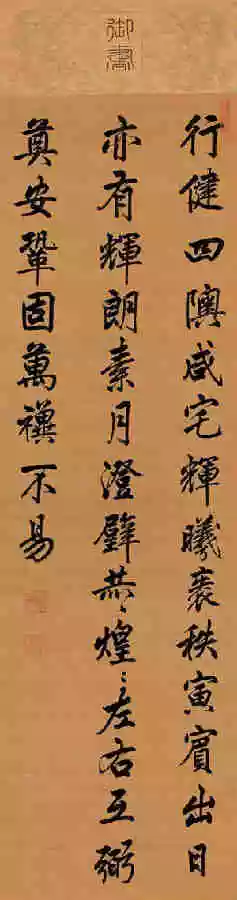 御書
行健四隩咸宅輝曦裒秩寅賓出日
亦有輝朗素月澄璧煌〻左右互弼
奠安鞏固萬禩不易